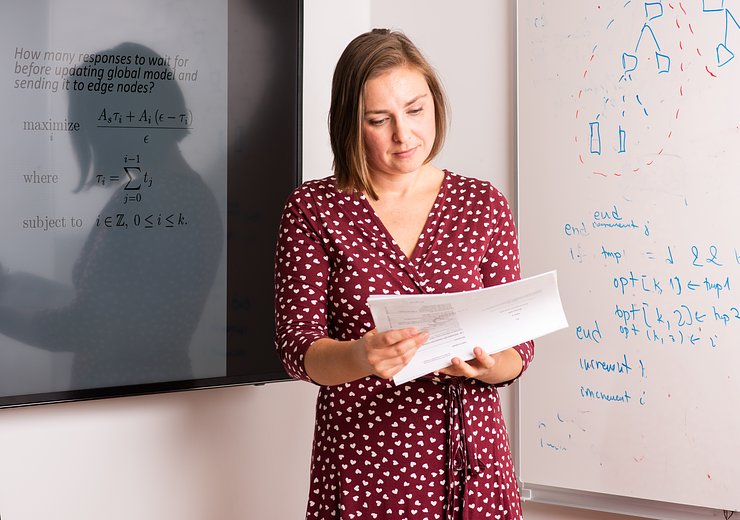 How many responses to wait for
before updating global model and
sending it to edge nodes?
maximize i A_s τ_i + A_i (ϵ − τ_i) / ϵ
where τ_i = ∑_{j=0}^{i−1} t_j
subject to i ∈ ℤ, 0 ≤ i ≤ k.
end
end
if tmp1 = &&
opt[k,1] ← tmp1
opt[k,2] ← tmp2
end opt[k,3] ← i
increment j
increment i